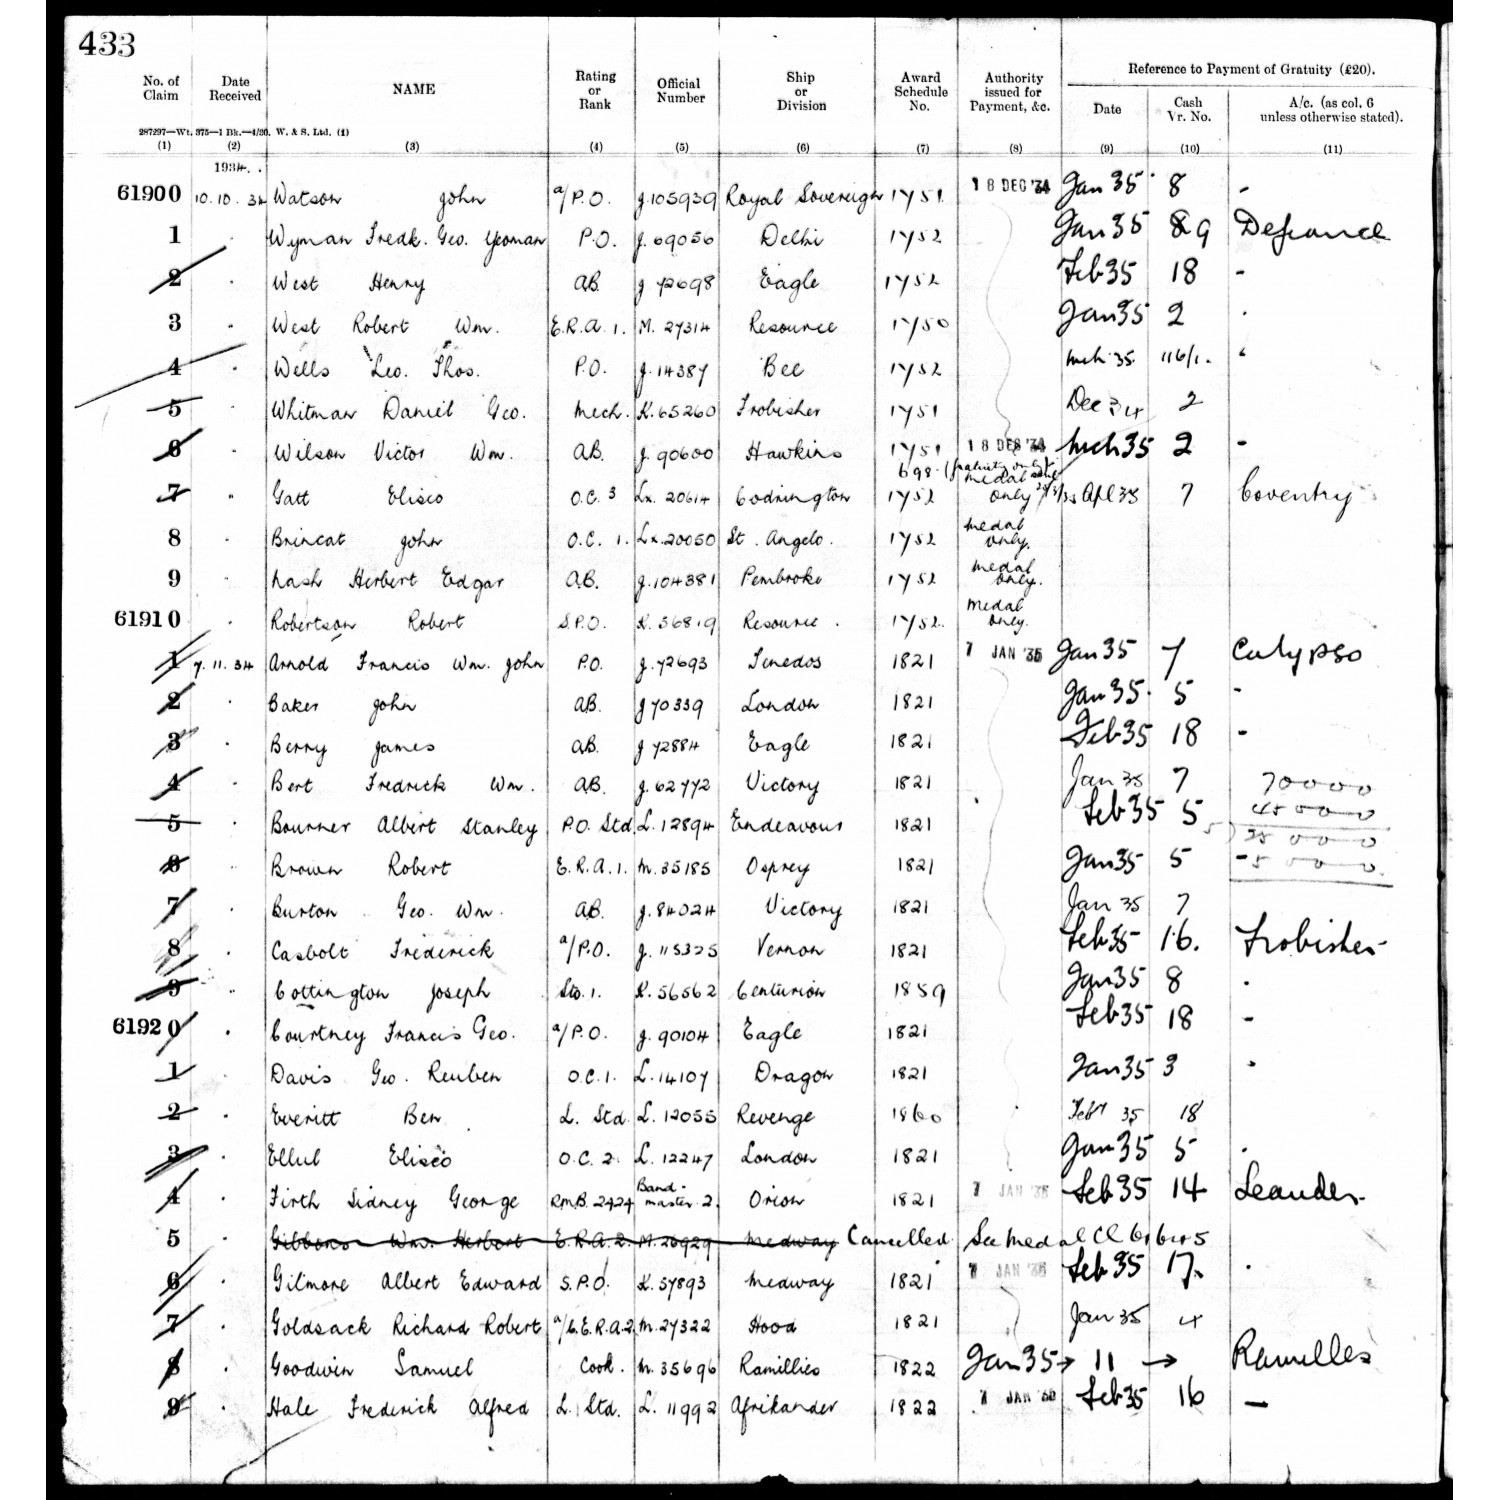 433
No. of Claim Date Received NAME Rating or Rank Official Number Ship or Division Award Schedule No. Authority issued for Payment, &c. Reference to Payment of Gratuity (£20).
Date Cash Vr. No. A/c. (as col. 6 unless otherwise stated).
287297—Wt. 375—1 Bk.—4/30. W. & S. Ltd. (1)
(1) (2) (3) (4) (5) (6) (7) (8) (9) (10) (11)
1934.
61900 10.10.34 Watson John a/P.O. J.105939 Royal Sovereign 1751 18 DEC '34 Jan 35 8 -
1 . Wyman Fredk. Geo. Yeoman P.O. J. 69056 Delhi 1752 Jan 35 89 Defiance
2 West Henry AB. J 72698 Eagle 1752 Feb 35 18 -
3 . West Robert Wm. E.R.A. 1. M. 27314 Resource 1750 Jan 35 2 .
4 . Wells Leo. Thos. P.O. J.14387 Bee 1752 Mch 35 116/1. "
5 . Whitman Daniel Geo. Mech. K.65260 Frobisher 1751 Dec 34 2
6 . Wilson Victor Wm. AB. J. 90600 Hawkins 1751 18 DEC '34 Mch 35 2 -
7 " Gatt Eliseo O.C. 3 Lx. 20614 Codrington 1752 medal only Apl 35 7 Coventry
8 . Brincat John O.C. 1. Lx.20050 St. Angelo. 1752 medal only.
9 . Nash Herbert Edgar AB. J.104381 Pembroke 1752 medal only.
61910 . Robertson Robert S.P.O. K. 56819 Resource. 1752. medal only.
1 7.11.34 Arnold Francis Wm. John P.O. J.72693 Tenedos 1821 7 JAN '35 Jan 35 7 Calypso
2 . Baker John AB. J 70339 London 1821 Jan 35. 5 -
3 . Berry James AB. J 72884 Eagle 1821 Feb 35 18 -
4 . Bert Fredrick Wm. AB. J. 62772 Victory 1821 Jan 35 7 70000
5 . Bourner Albert Stanley P.O. Std L. 12894 Endeavour 1821 Feb 35 5 450000
6 . Brown Robert E.R.A. 1. M. 35185 Osprey 1821 Jan 35 5 -50000.
7 . Burton Geo. Wm. AB. J. 84024 Victory 1821 Jan 35 7
8 . Casbolt Frederick a/P.O. J. 115325 Vernon 1821 Feb 35 16. Frobisher
9 " Cottington Joseph Sto. 1. K. 56562 Centurion 1859 Jan 35 8 .
61920 . Courtney Francis Geo. a/P.O. J. 90104 Eagle 1821 Feb 35 18 -
1 . Davis Geo. Reuben O.C. 1. L. 14107 Dragon 1821 Jan 35 3 "
2 . Everitt Ben L. Std. L. 12055 Revenge 1860 Feby 35 18
3 . Ellul Eliseo O.C. 2. L. 12247 London 1821 Jan 35 5 .
4 . Firth Sidney George R.M.B. 2424 Band-master 2. Orion 1821 7 JAN '35 Feb 35 14 Leander
5 Gibbons Wm. Herbert E.R.A. 2. M. 26929 Medway Cancelled See medal Cl
6 . Gilmore Albert Edward S.P.O. K. 57893 Medway 1821 7 JAN '35 Feb 35 17. .
7 . Goldsack Richard Robert a/C.E.R.A.2. M.27322 Hood 1821 Jan 35 4
8 . Goodwin Samuel Cook. M. 35696 Ramillies 1822 Jan 35 → 11 → Ramilles
9 . Hale Frederick Alfred L. Std. L. 11992 Afrikander 1822 7 JAN '35 Feb 35 16 —